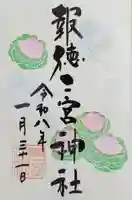 報徳二宮神社
令和八年
一月三十一日